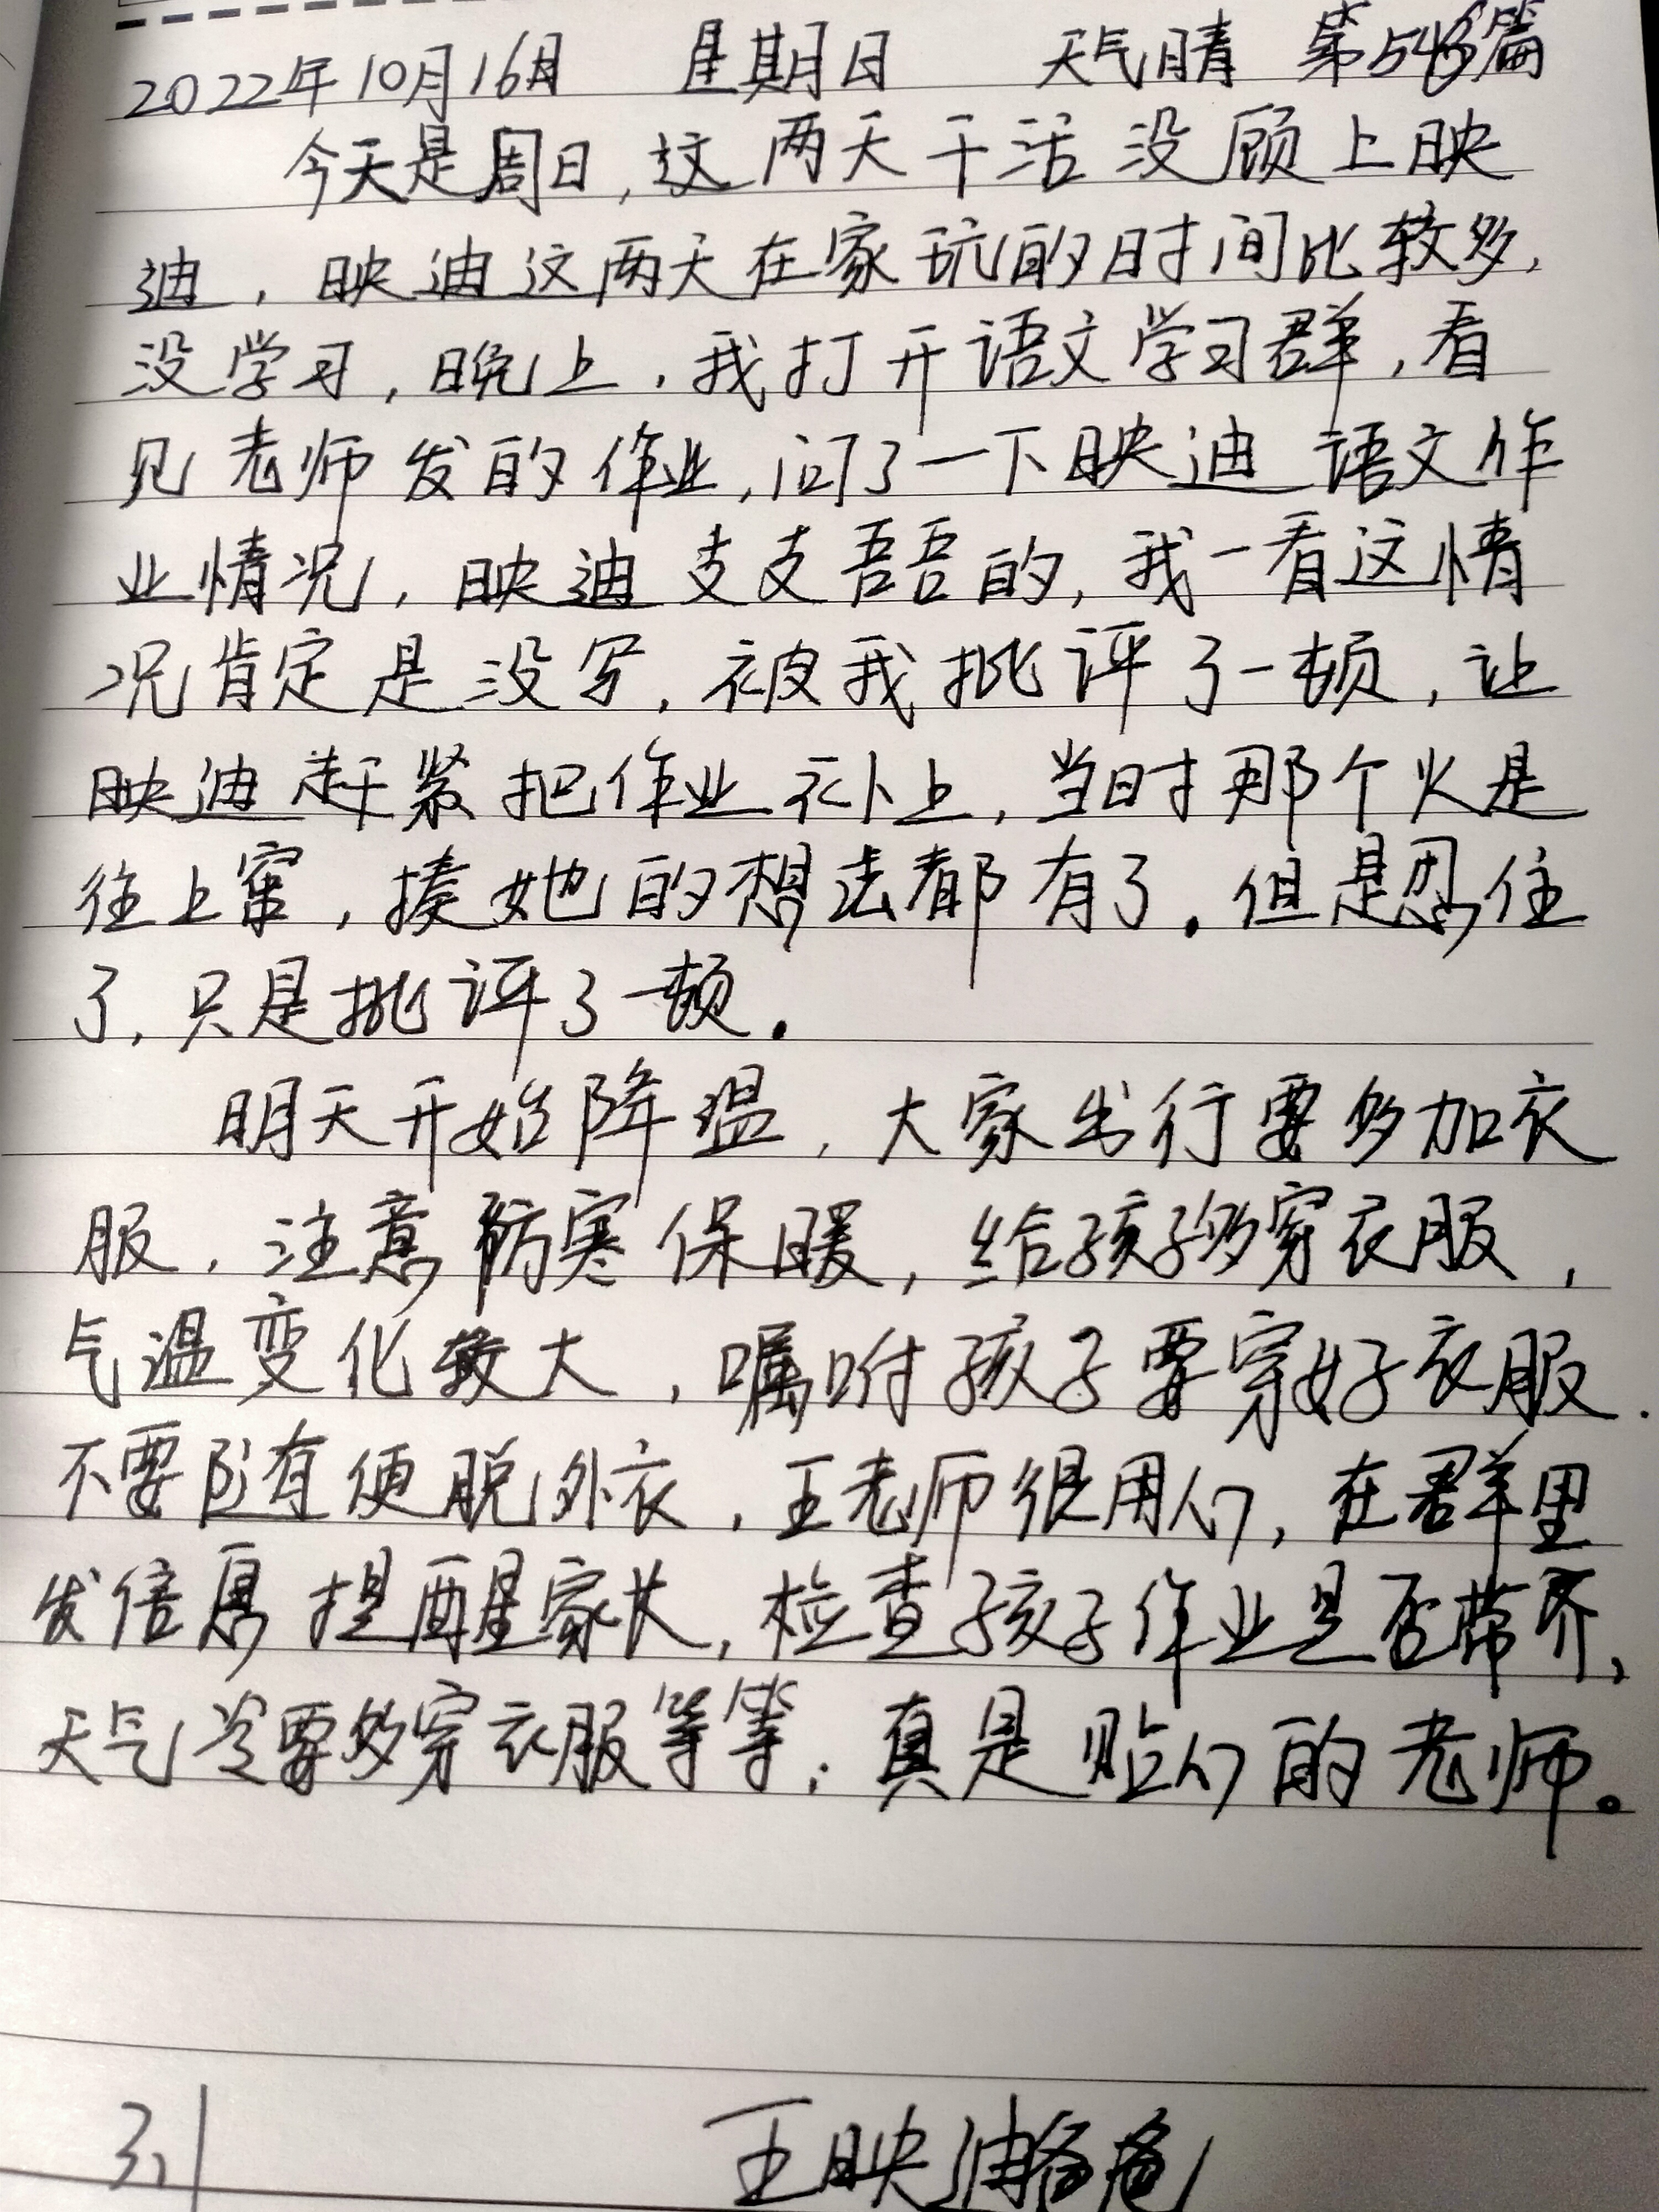 2022年10月16日 星期日 天气晴 第546篇
今天是周日,这两天干活没顾上映
迪,映迪这两天在家玩的时间比较多,
没学习,晚上,我打开语文学习群,看
见老师发的作业,问了一下映迪语文作
业情况,映迪支支吾吾的,我一看这情
况肯定是没写,被我批评了一顿,让
映迪赶紧把作业补上,当时那个火是
往上窜,揍她的想法都有了。但是忍住
了,只是批评了一顿。
明天开始降温,大家出行要多加衣
服,注意防寒保暖,给孩子多穿衣服,
气温变化较大,嘱咐孩子要穿好衣服.
不要随便脱外衣,王老师很用心,在群里
发信息提醒家长,检查孩子作业是否带齐,
天气冷要多穿衣服等等,真是贴心的老师。
31 王映迪爸爸